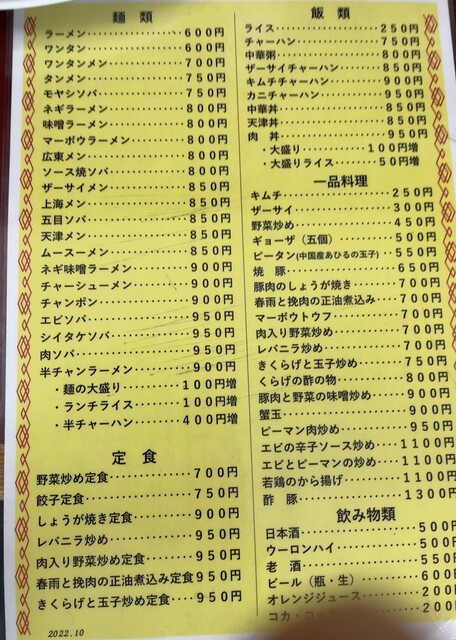 麺類
ラーメン・・・・・・・・・・・・６００円
ワンタン・・・・・・・・・・・・６００円
ワンタンメン・・・・・・・・７００円
タンメン・・・・・・・・・・・・７５０円
モヤシソバ・・・・・・・・・・７５０円
ネギラーメン・・・・・・・・８００円
味噌ラーメン・・・・・・・・８００円
マーボウラーメン・・・・８００円
広東メン・・・・・・・・・・・・８００円
ソース焼ソバ・・・・・・・・８００円
ザーサイメン・・・・・・・・８５０円
上海メン・・・・・・・・・・・・８５０円
五目ソバ・・・・・・・・・・・・８５０円
天津メン・・・・・・・・・・・・８５０円
ムースーメン・・・・・・・・８５０円
ネギ味噌ラーメン・・・・９００円
チャーシューメン・・・・９００円
チャンポン・・・・・・・・・・９００円
エビソバ・・・・・・・・・・・・９５０円
シイタケソバ・・・・・・・・９５０円
肉ソバ・・・・・・・・・・・・・・９５０円
半チャンラーメン・・・・９００円
・麺の大盛り・・・・・・１００円増
・ランチライス・・・・１００円増
・半チャーハン・・・・４００円増
定食
野菜炒め定食・・・・・・・・７００円
餃子定食・・・・・・・・・・・・７５０円
しょうが焼き定食・・・・９００円
レバニラ炒め・・・・・・・・９５０円
肉入り野菜炒め定食・・・・９５０円
春雨と挽肉の正油煮込み定食９５０円
きくらげと玉子炒め定食・・・９５０円
2022.10
飯類
ライス・・・・・・・・・・・・・・２５０円
チャーハン・・・・・・・・・・７５０円
中華粥・・・・・・・・・・・・・・８００円
ザーサイチャーハン・・・・８５０円
キムチチャーハン・・・・９００円
カニチャーハン・・・・・・９５０円
中華丼・・・・・・・・・・・・・・８５０円
天津丼・・・・・・・・・・・・・・８５０円
肉丼・・・・・・・・・・・・・・・・９５０円
・大盛り・・・・・・・・１００円増
・大盛りライス・・・・５０円増
一品料理
キムチ・・・・・・・・・・・・・・２５０円
ザーサイ・・・・・・・・・・・・３００円
野菜炒め・・・・・・・・・・・・４５０円
ギョーザ（五個）・・・・・・５００円
ピータン(中国産あひるの玉子)・・５５０円
焼豚・・・・・・・・・・・・・・・・６５０円
豚肉のしょうが焼き・・・・７００円
春雨と挽肉の正油煮込み・・・７００円
マーボウトウフ・・・・・・７００円
肉入り野菜炒め・・・・・・７００円
レバニラ炒め・・・・・・・・７００円
きくらげと玉子炒め・・・・７５０円
くらげの酢の物・・・・・・８００円
豚肉と野菜の味噌炒め・・・９００円
蟹玉・・・・・・・・・・・・・・・・９００円
ピーマン肉炒め・・・・・・９５０円
エビの辛子ソース炒め・・・１１００円
エビとピーマンの炒め・・・１１００円
若鶏のから揚げ・・・・・・１１００円
酢豚・・・・・・・・・・・・・・１３００円
飲み物類
日本酒・・・・・・・・・・・・・・５００円
ウーロンハイ・・・・・・・・５００円
老酒・・・・・・・・・・・・・・・・５５０円
ビール（瓶・生）・・・・・・６００円
オレンジジュース・・・・２００円
コカ・コ・・・・２００円